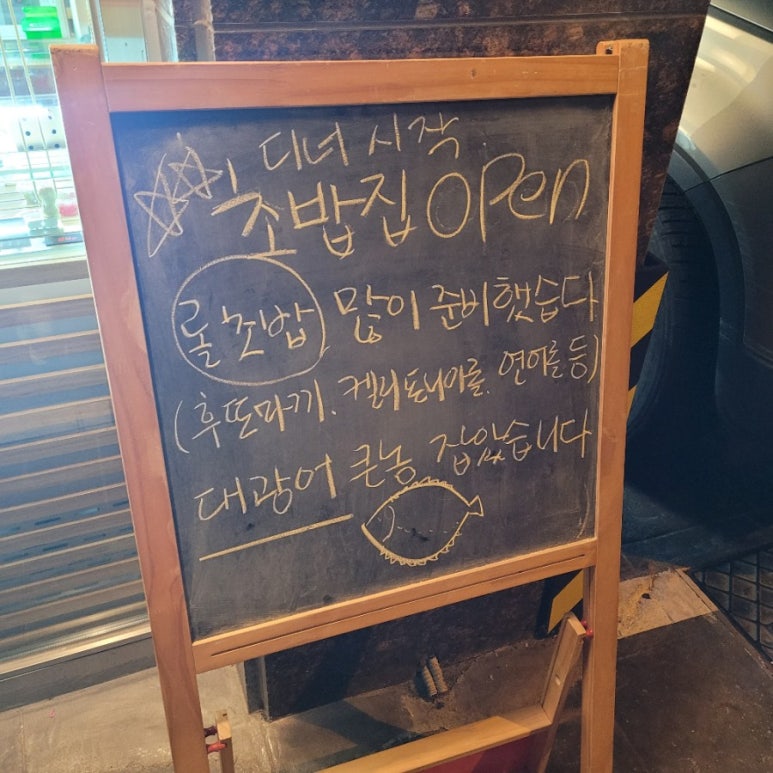 디녀 시작
초밥집 OPen
롤초밥 많이 준비했습다
(후또마끼. 켈리포니아롤. 연어롤 등)
대광어 큰놈 잡았습니다